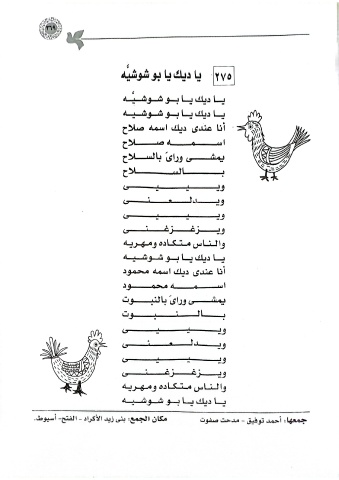 ٣٦٩
٢٧٥
يا ديك يا بو شوشيَّه
يا ديك يا بو شوشيَّه
يا ديك يا بو شوشيه
أنا عندى ديك اسمه صلاح
اسمه صلاح
يمشى وراىَ بالسلاح
بالسلاح
وييبى
ويدلعنى
وييبى
ويزغزغنى
والناس متكاده ومهريه
يا ديك يا بو شوشيه
أنا عندى ديك اسمه محمود
اسمه محمود
يمشى وراىَ بالنبوت
بالنبوت
وييبى
ويدلعنى
وييبى
ويزغزغنى
والناس متكاده ومهريه
يا ديك يا بو شوشيه
جمعها: أحمد توفيق - مدحت صفوت
مكان الجمع: بنى زيد الأكراد - الفتح - أسيوط.